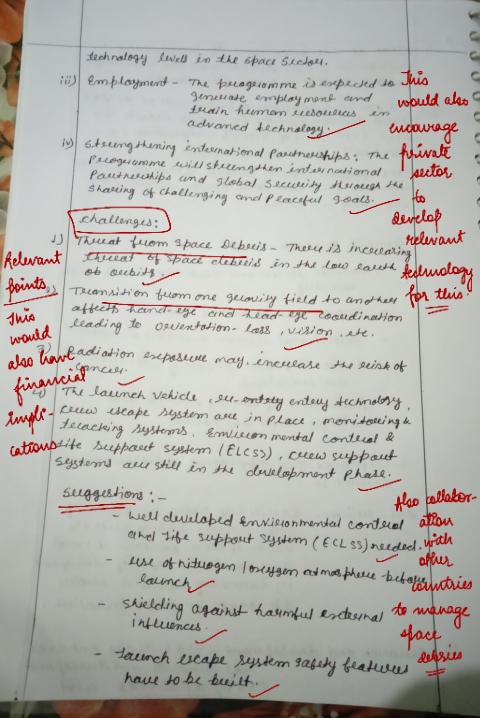 technology levels in the space sector.
iii) Employment - The programme is expected to
generate employment and
train human resources in
advanced technology.
iv) Strengthening international Partnerships: The
Programme will strengthen international
Partnerships and global security through the
sharing of challenging and Peaceful goals.
This
would also
encourage
private
sector
to
develop
relevant
technology
for this.
Challenges:
1) Threat from Space Debris - There is increasing
threat of space debris in the low earth
ob orbits.
2) Transition from one gravity field to another
affects hand-eye and head-eye coordination
leading to orientation-loss, vision, etc.
3) Radiation exposure may increase the risk of
cancer.
4) The launch vehicle, re-entery entery technology,
crew escape system are in place, monitoring &
tracking systems, Environmental control &
life support system (ELCSS), crew support
systems are still in the development phase.
Relevant
points.
This
would
also have
financial
impli-
cations
Suggestions:-
- Well developed Environmental control
and life support system (ECLSS) needed.
- use of nitrogen/oxygen atmosphere before
launch
- Shielding against harmful external
influences.
- launch escape system safety features
have to be built.
Also collabor-
ation
with
other
countries
to manage
space
debries